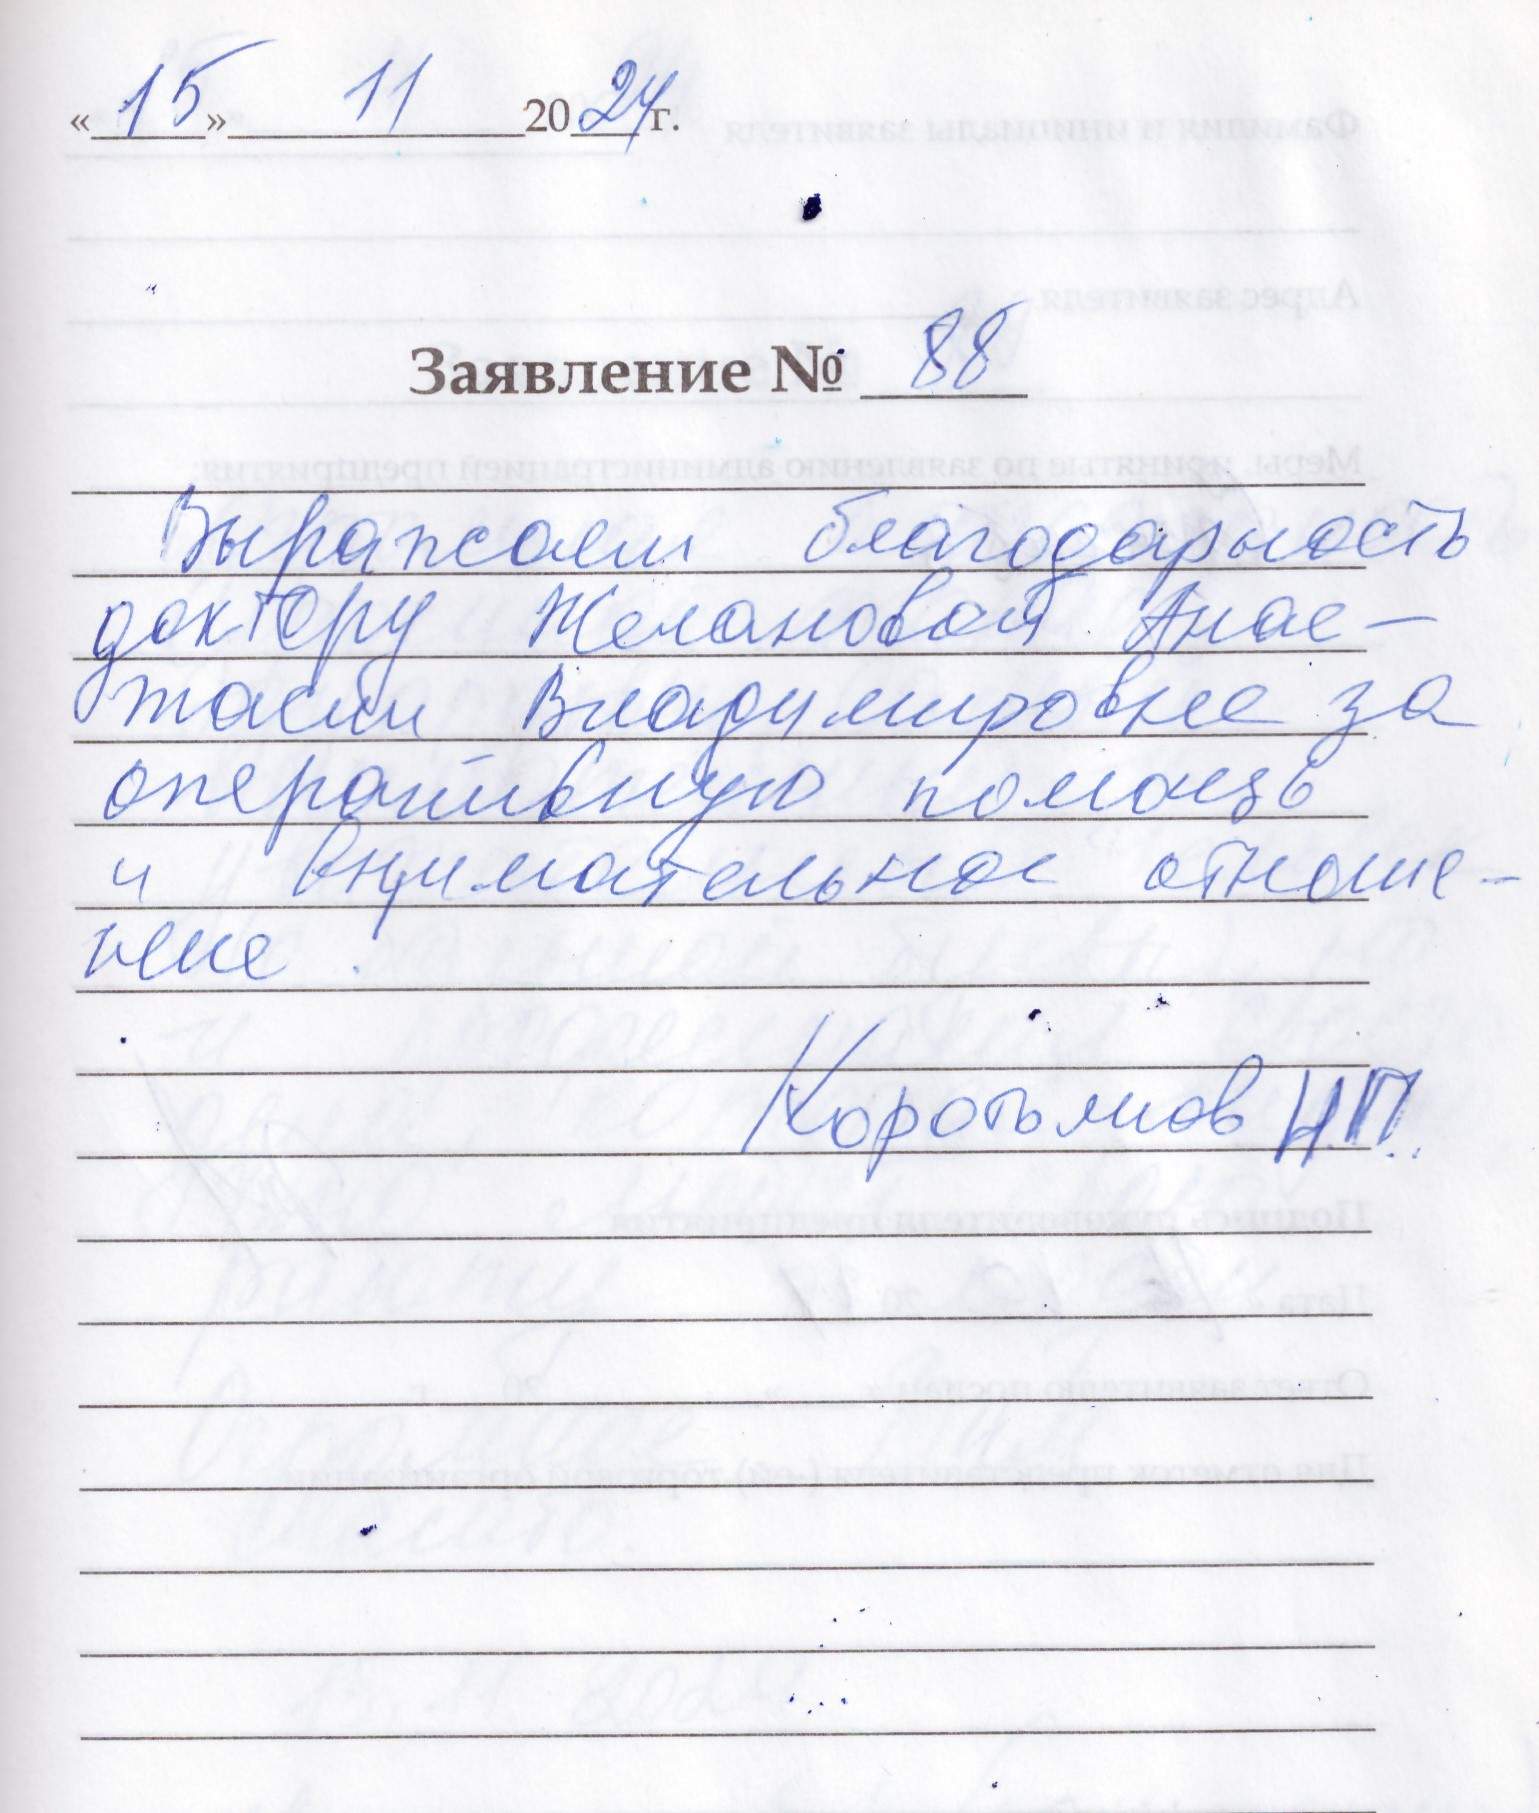 «15» 11 2024 г.
Заявление № 88
Выражаем благодарность
доктору Желановой Анас-
тасии Владимировне за
оперативную помощь
и внимательное отноше-
ние.
Н.П.